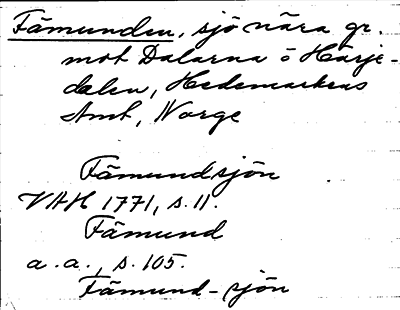 Fämunden, sjö nära gr.
mot Dalarna o Härje-
dalen, Hedemarkens
Amt, Norge
Fämundsjön
VAH 1771, s. 11.
Fämund
a. a., s. 105.
Fämund-sjön